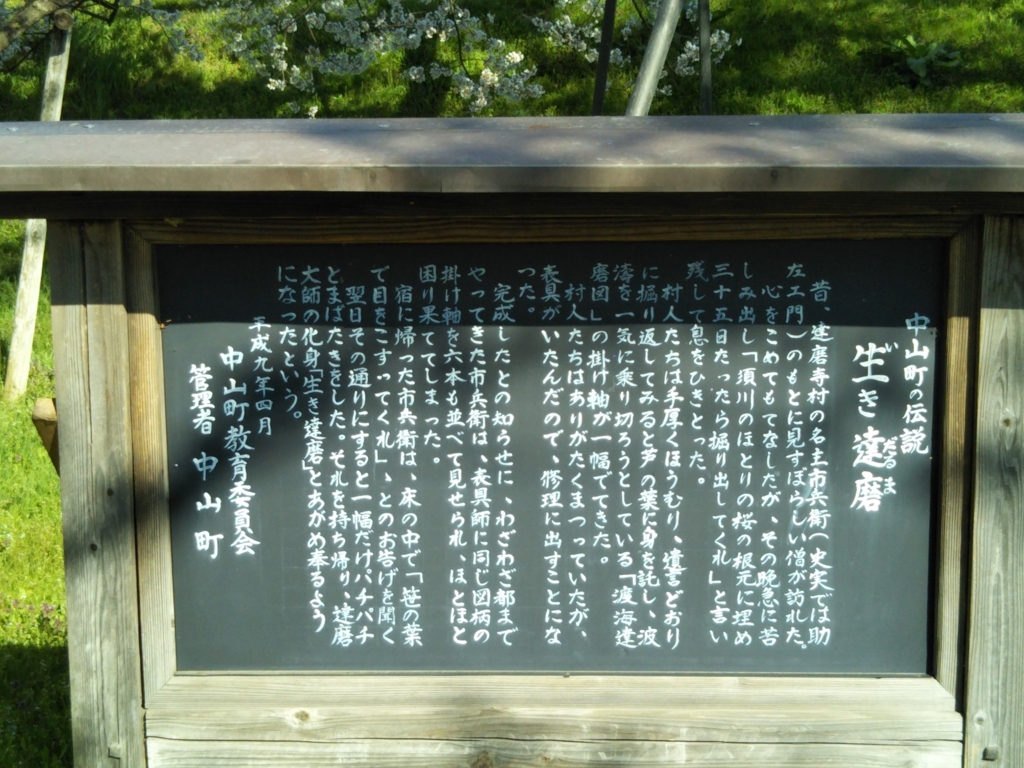 中山町の伝説
生き達磨
い だるま
昔、達磨寺村の名主市兵衛(史実では助
左エ門)のもとに見すぼらしい僧が訪れた。
心をこめてもてなしたが、その晩急に苦
しみ出し「須川のほとりの桜の根元に埋め
三十五日たったら掘り出してくれ」と言い
残して息をひきとった。
村人たちは手厚くほうむり、遺言どおり
に掘り返してみると芦の葉に身を託し、波
濤を一気に乗り切ろうとしている「渡海達
磨図」の掛け軸が一幅でてきた。
村人たちはありがたくまつっていたが、
表具がいたんだので、修理に出すことにな
った。
完成したとの知らせに、わざわざ都まで
やってきた市兵衛は、表具師に同じ図柄の
掛け軸を六本も並べて見せられ、ほとほと
困り果ててしまった。
宿に帰った市兵衛は、床の中で「笹の葉
で目をこすってくれ」、とのお告げを聞く
翌日その通りにすると一幅だけパチパチ
とまばたきをした。それを持ち帰り、達磨
大師の化身「生き達磨」とあがめ奉るよう
になったという。
平成九年四月
中山町教育委員会
管理者 中山町